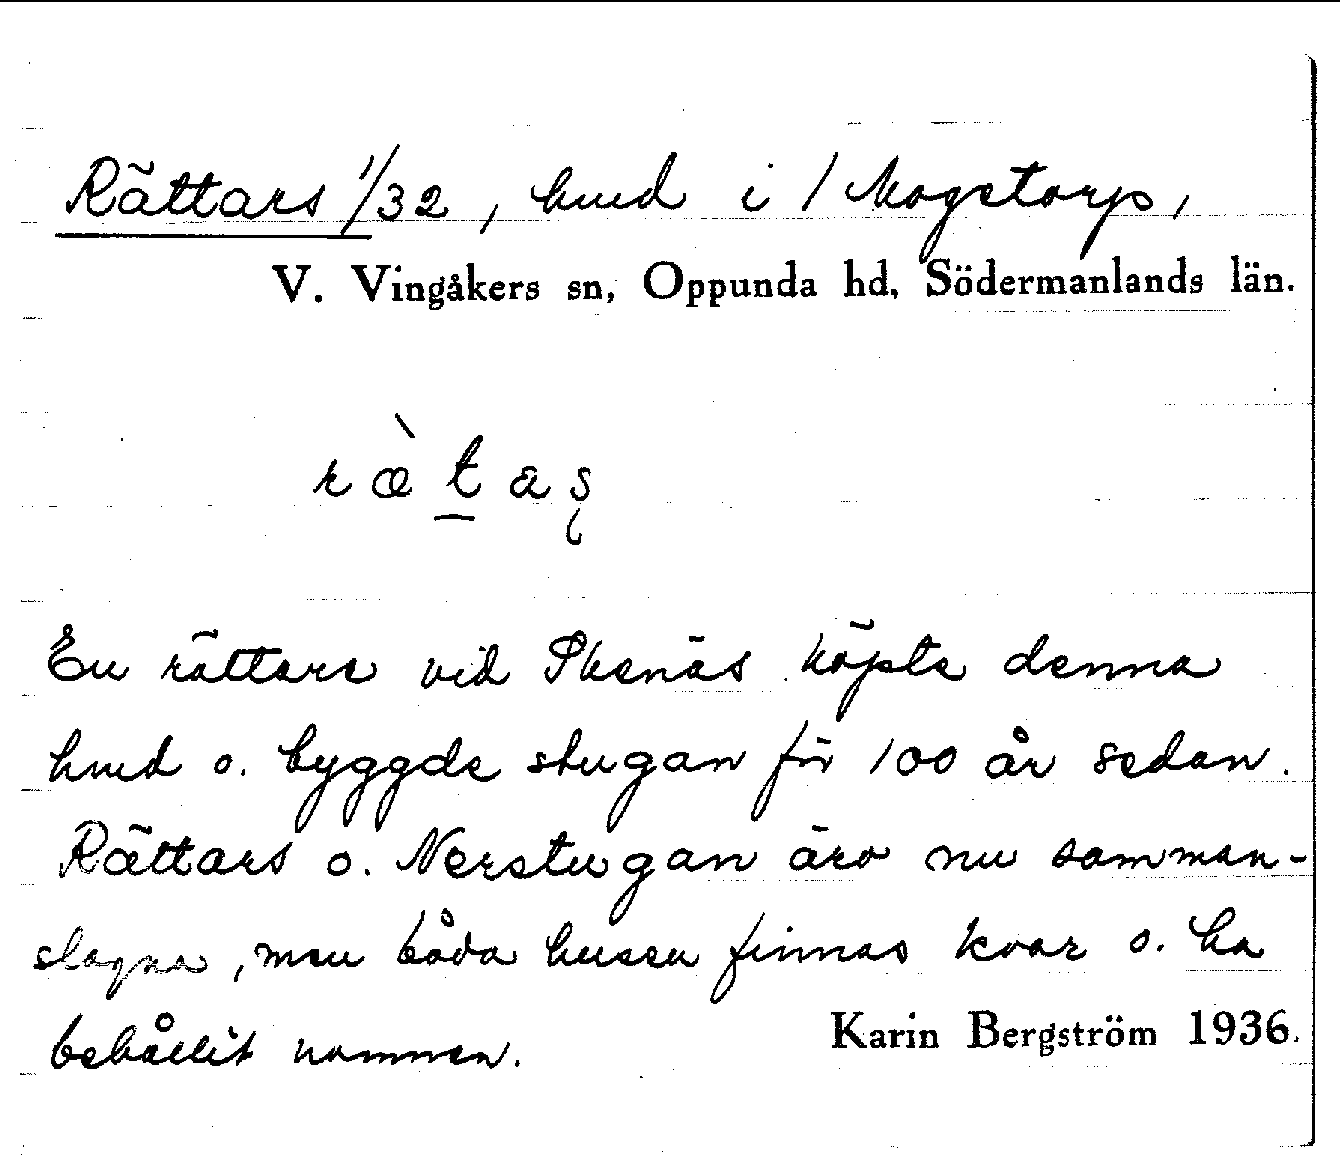 Rättars 1/32, hmd i 1 Mogetorp,
V. Vingåkers sn, Oppunda hd, Södermanlands län.
ræ̀t̠as̨
En rättare vid Skenäs köpte denna
hmd o. byggde stugan för 100 år sedan.
Rättars o. Nerstugan äro nu samman-
slagna, men båda husen finnas kvar o. ha
behållit namnen.
Karin Bergström 1936.